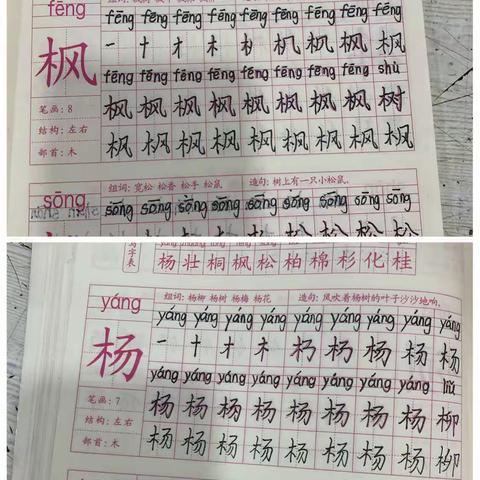 fēng
fēng fēng fēng fēng fēng fēng fēng fēng
枫 一 十 才 木 朳 机 枫 枫
fēng fēng fēng fēng fēng fēng fēng shù
枫 枫 枫 枫 枫 枫 枫 树
笔画:8
结构:左右
部首:木
枫 枫 枫 枫 枫 枫 枫 枫
sōng
组词:宽松 松香 松手 松鼠 造句:树上有一只小松鼠.
sōng sōng sōng sōng sōng sōng sōng sōng
写字表
杨 壮 桐 枫 松 柏 棉 杉 化 桂
yáng
组词:杨柳 杨树 杨梅 杨花 造句:风吹着杨树的叶子沙沙地响.
yáng yáng yáng yáng yáng yáng yáng yáng yáng
杨 一 十 才 木 杨 杨 杨
yáng yáng yáng yáng yáng yáng yáng yáng liǔ
杨 杨 杨 杨 杨 杨 杨 杨 柳
笔画:7
结构:左右
部首:木
杨 杨 杨 杨 杨 杨 杨 杨 柳